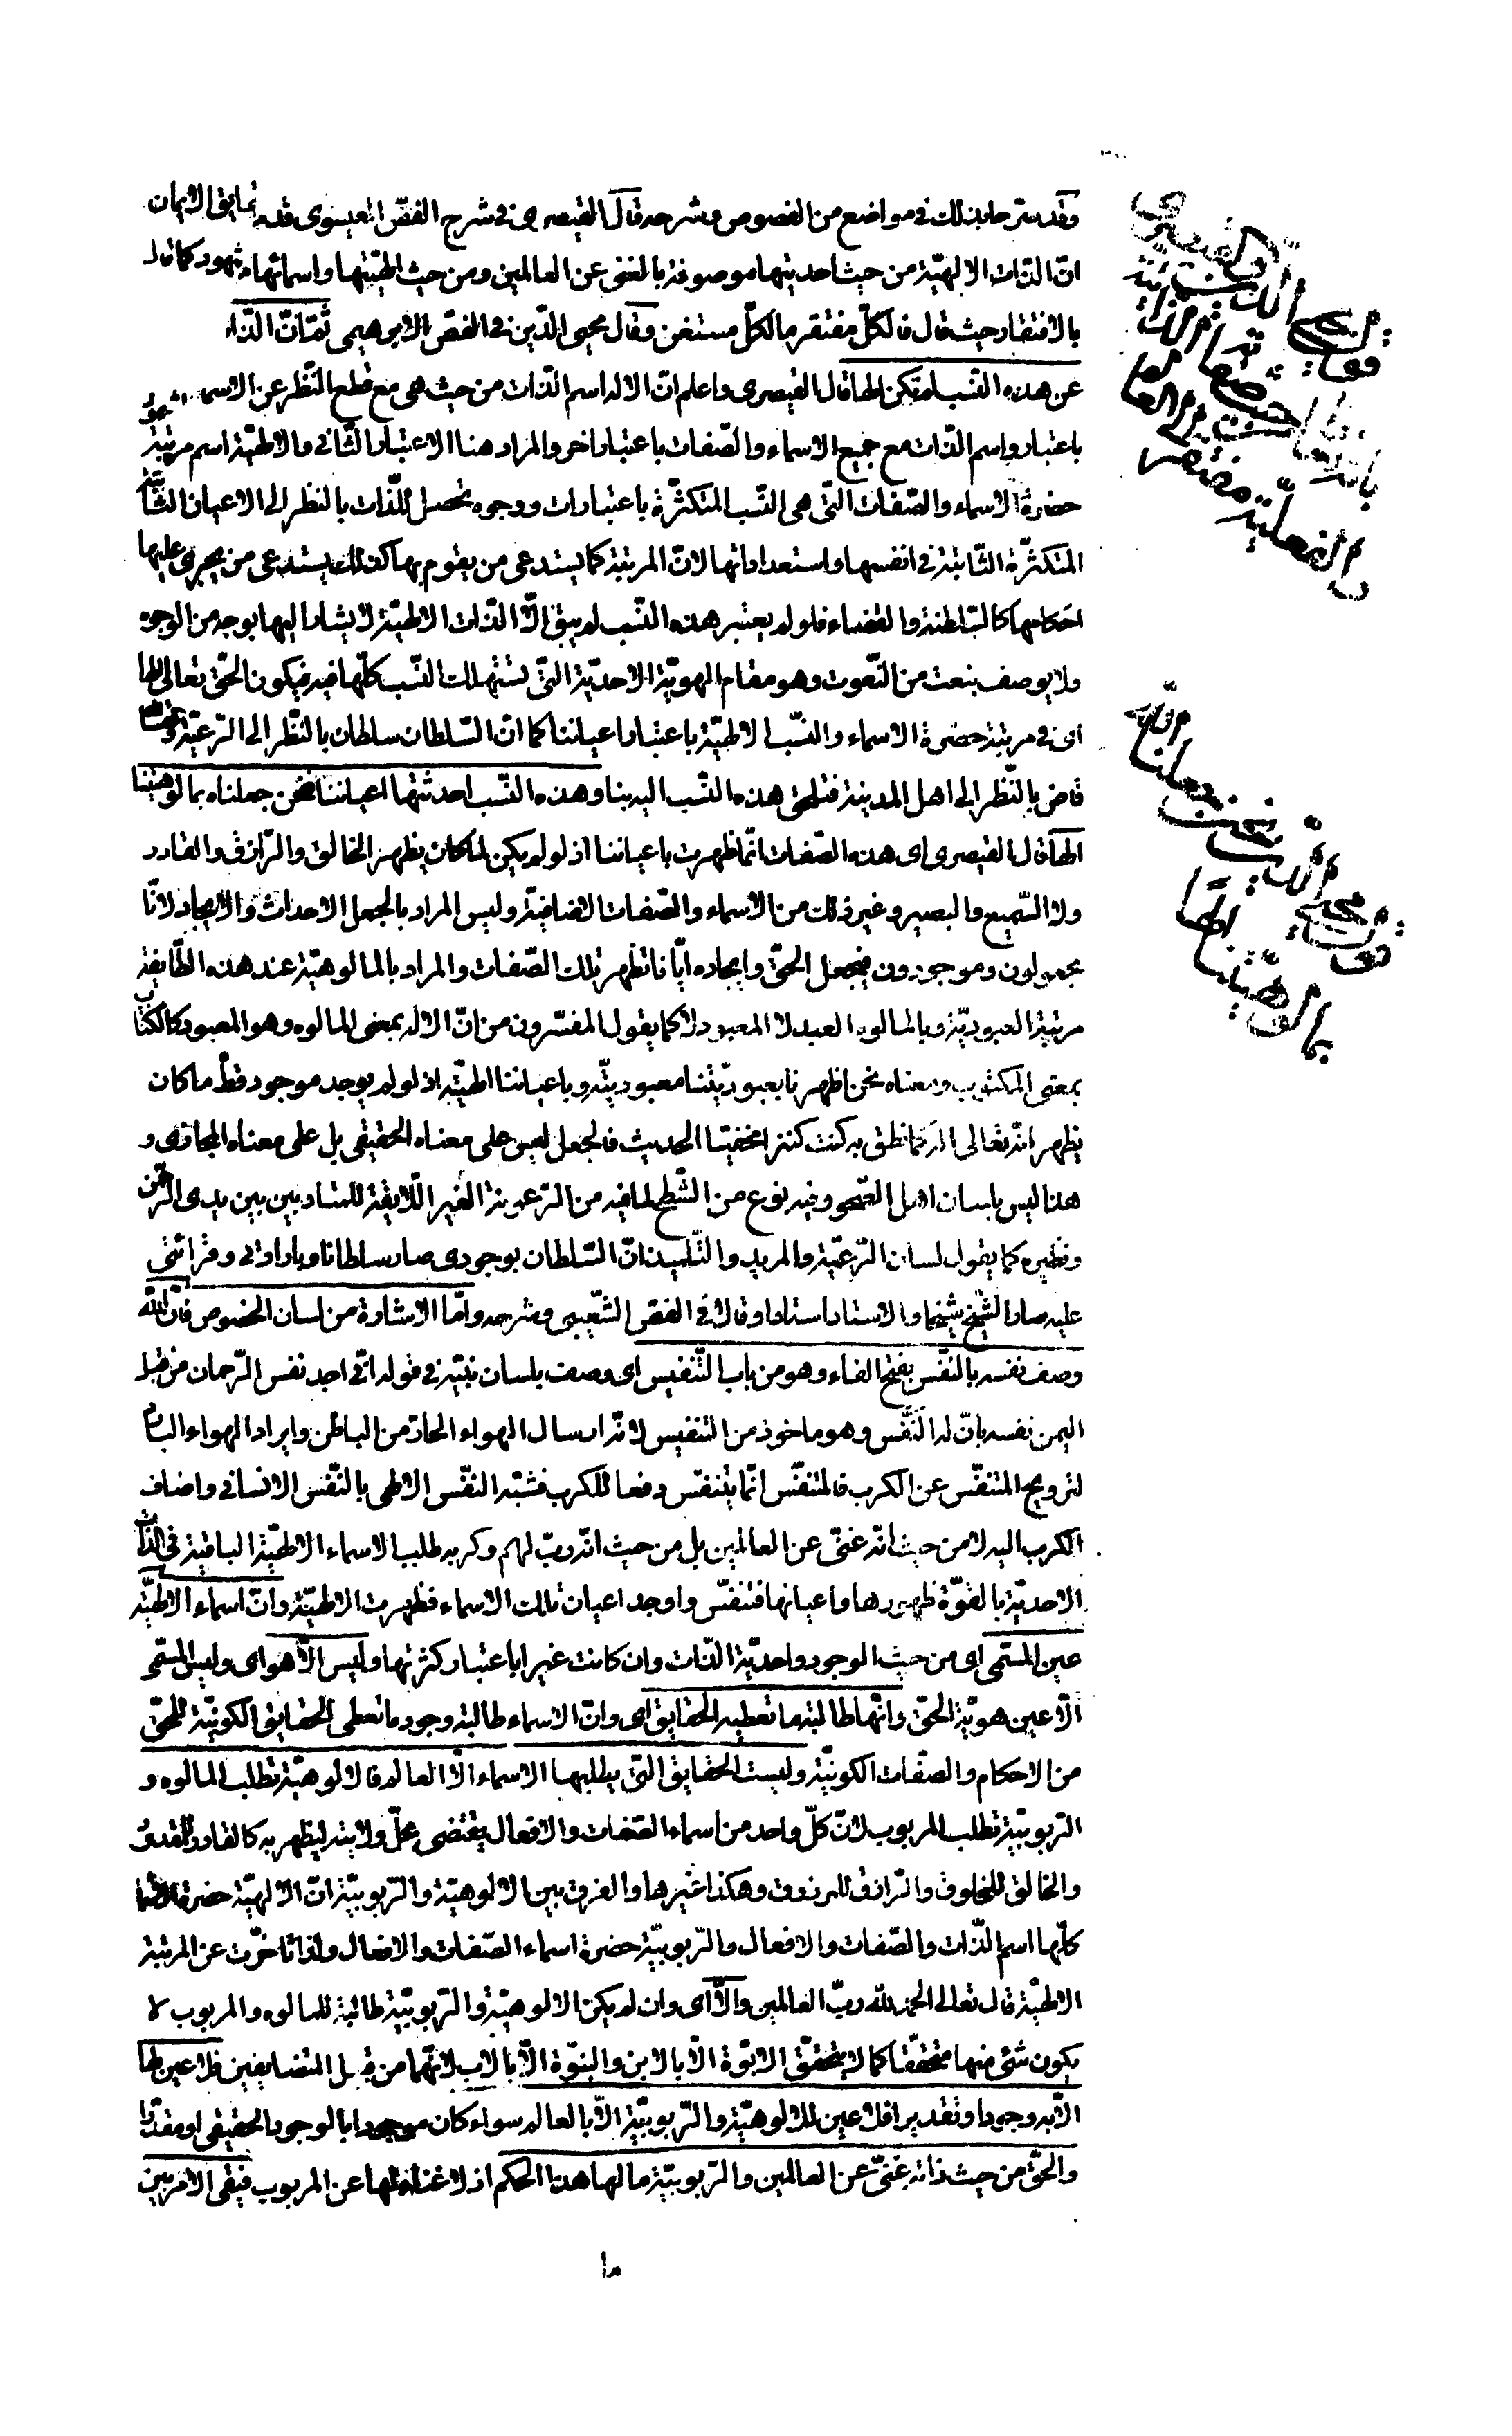 وقد صرحا بذلك في مواضع من الفصوص وشرحه قال القيصري في شرح الفصّ العيسوى
انّ الذّات الالهيّة من حيث احديتها موصوفة بالغنى عن العالمين ومن حيث الهيّتها واسمائها كما قال
بالافتقار حيث قال فالكلّ مفتقر ما الكلّ مستغن وقال محيي الدّين في الفصّ الابرهيمى ثمّ انّ الذّات
عن هذه النّسب لم تكن الها قال القيصرى واعلم انّ الاله اسم الذّات من حيث هي مع قطع النّظر عن الاسماء
باعتبار واسم الذّات مع جميع الاسماء والصّفات باعتبار اخر والمراد هنا الاعتبار الثّانى والالهيّة اسم مرتبة
حضرة الاسماء والصّفات التّى هي النّسب المتكثّرة باعتبارات ووجوه تحصل للذّات بالنظر الى الاعيان الثّابتة
المتكثّرة الثّابتة في انفسها واستعداداتها لانّ المرتبة كما يستدعى من يقوم بها كذلك يستدعى من يجرى عليها
احكامها كالسّلطنة والقضاء فلو لم يعتبر هذه النّسب لم يبق الّا الذّات الالهيّة لا يشار اليها بوجه من الوجوه
ولا يوصف بنعت من النّعوت وهو مقام الهويّة الاحديّة التّى تستهلك النّسب كلّها فيه فيكون الحقّ تعالى الها
اى في مرتبة حضرة الاسماء والنّسب الالهيّة باعتبار اعياننا كما انّ السّلطان سلطان بالنّظر الى الرّعيّة والقاضى
قاض بالنّظر الى اهل المدينة فتلحق هذه النّسب اليه بنا وهذه النّسب احدثتها اعياننا فنحن جعلناه بمالوهيّتنا
الها قال القيصرى اى هذه الصّفات انّما ظهرت باعياننا اذ لو لم يكن لما كان يظهر الخالق والرّازق والقادر
ولا السّميع والبصير وغير ذلك من الاسماء والصّفات الاضافيّة وليس المراد بالجعل الاحداث والايجاد لانّا
مجعولون وموجودون بجعل الحقّ وايجاده ايّانا تظهر تلك الصّفات والمراد بالمالوهيّة عند هذه الطّايفة
مرتبة العبوديّة وبالمالوه العبد لا المعبود لا كما يقول المفسّرون من انّ الاله بمعنى المالوه وهو المعبود كالكتاب
بمعنى المكتوب ومعناه نحن اظهرنا بعبوديّتنا معبوديّته وباعياننا الهيّته اذ لو لم يوجد موجود قطّ ما كان
يظهر انّه تعالى اله كما نطق به كنت كنزا مخفيّا الحديث فالجعل ليس على معناه الحقيقى بل على معناه المجازى و
هذا ليس بلسان اهل الصّحو وفيه نوع من الشّطح لما فيه من الرّعونة الغير اللّايقة للمتادبين بين يدى الرّحمن
ونظيره كما يقول لسان الرّعيّة والمريد والتّلميذ انّ السّلطان بوجودى صار سلطانا وبارادتى وقرائتى
عليه صار الشّيخ شيخا والاستاد استادا وقالا في الفصّ الشّعيبى وشرحه وامّا الاشارة من لسان الخصوص فانّ اللّه
وصف نفسه بالنّفس بفتح الفاء وهو من باب التّنفيس اى وصف بلسان نبيّه في قوله انّى اجد نفس الرّحمان من قبل
اليمن نفسه بانّ له النّفس وهو ماخوذ من التنفيس لانّه ارسال الهواء الحارّ من الباطن وايراد الهواء البارد
لترويح المتنفّس عن الكرب فالمتنفّس انّما يتنفّس دفعا للكرب فشبّه النّفس الالهى بالنّفس الانسانى واضاف
الكرب اليه لا من حيث انّه غنىّ عن العالمين بل من حيث انّه ربّ لهم وكربه طلب الاسماء الالهيّة الباقية في الذّات
الاحديّة بالقوّة ظهورها واعيانها فتنفّس واوجد اعيان تلك الاسماء فظهرت الالهيّة وانّ اسماء الالهيّة
عين المسمّى اى من حيث الوجود واحديّة الذّات وان كانت غيرا باعتبار كثرتها وليس الّا هو اى وليس المسمّى
الّا عين هويّة الحقّ وانّها طالبة ما تعطيه الحقايق اى وانّ الاسماء طالبة وجود ما تعطى الحقايق الكونيّة للحقّ
من الاحكام والصّفات الكونيّة وليست الحقايق التّى يطلبها الاسماء الّا العالم فالالوهيّة تطلب المالوه و
الرّبوبيّة تطلب المربوب لانّ كلّ واحد من اسماء الصّفات والافعال يقتضى محلّ ولايته ليظهر به كالقادر للمقدور
والخالق للمخلوق والرّازق للمرزوق وهكذا غيرها والفرق بين الالوهيّة والرّبوبيّة انّ الالهيّة حضرة الاسماء
كلّها اسم الذّات والصّفات والافعال والرّبوبيّة حضرة اسماء الصّفات والافعال ولذا تاخّرت عن المرتبة
الالهيّة قال تعالى الحمد للّه ربّ العالمين والّا اى وان لم يكن الالوهيّة والرّبوبيّة طالبة للمالوه والمربوب لا
يكون شئ منها متحقّقا كما لا يتحقّق الابوّة الّا بالابن والبنوّة الّا بالاب لانّهما من قبيل المتضايفين فلا عين لها
الّا به وجودا وتقديرا فلا عين للالوهيّة والرّبوبيّة الّا بالعالم سواء كان موجودا بالوجود الحقيقى او مقدّرا
والحقّ من حيث ذاته غنىّ عن العالمين والرّبوبيّة ما لها هذا الحكم اذ لا غناء لها عن المربوب فبقى الامر بين